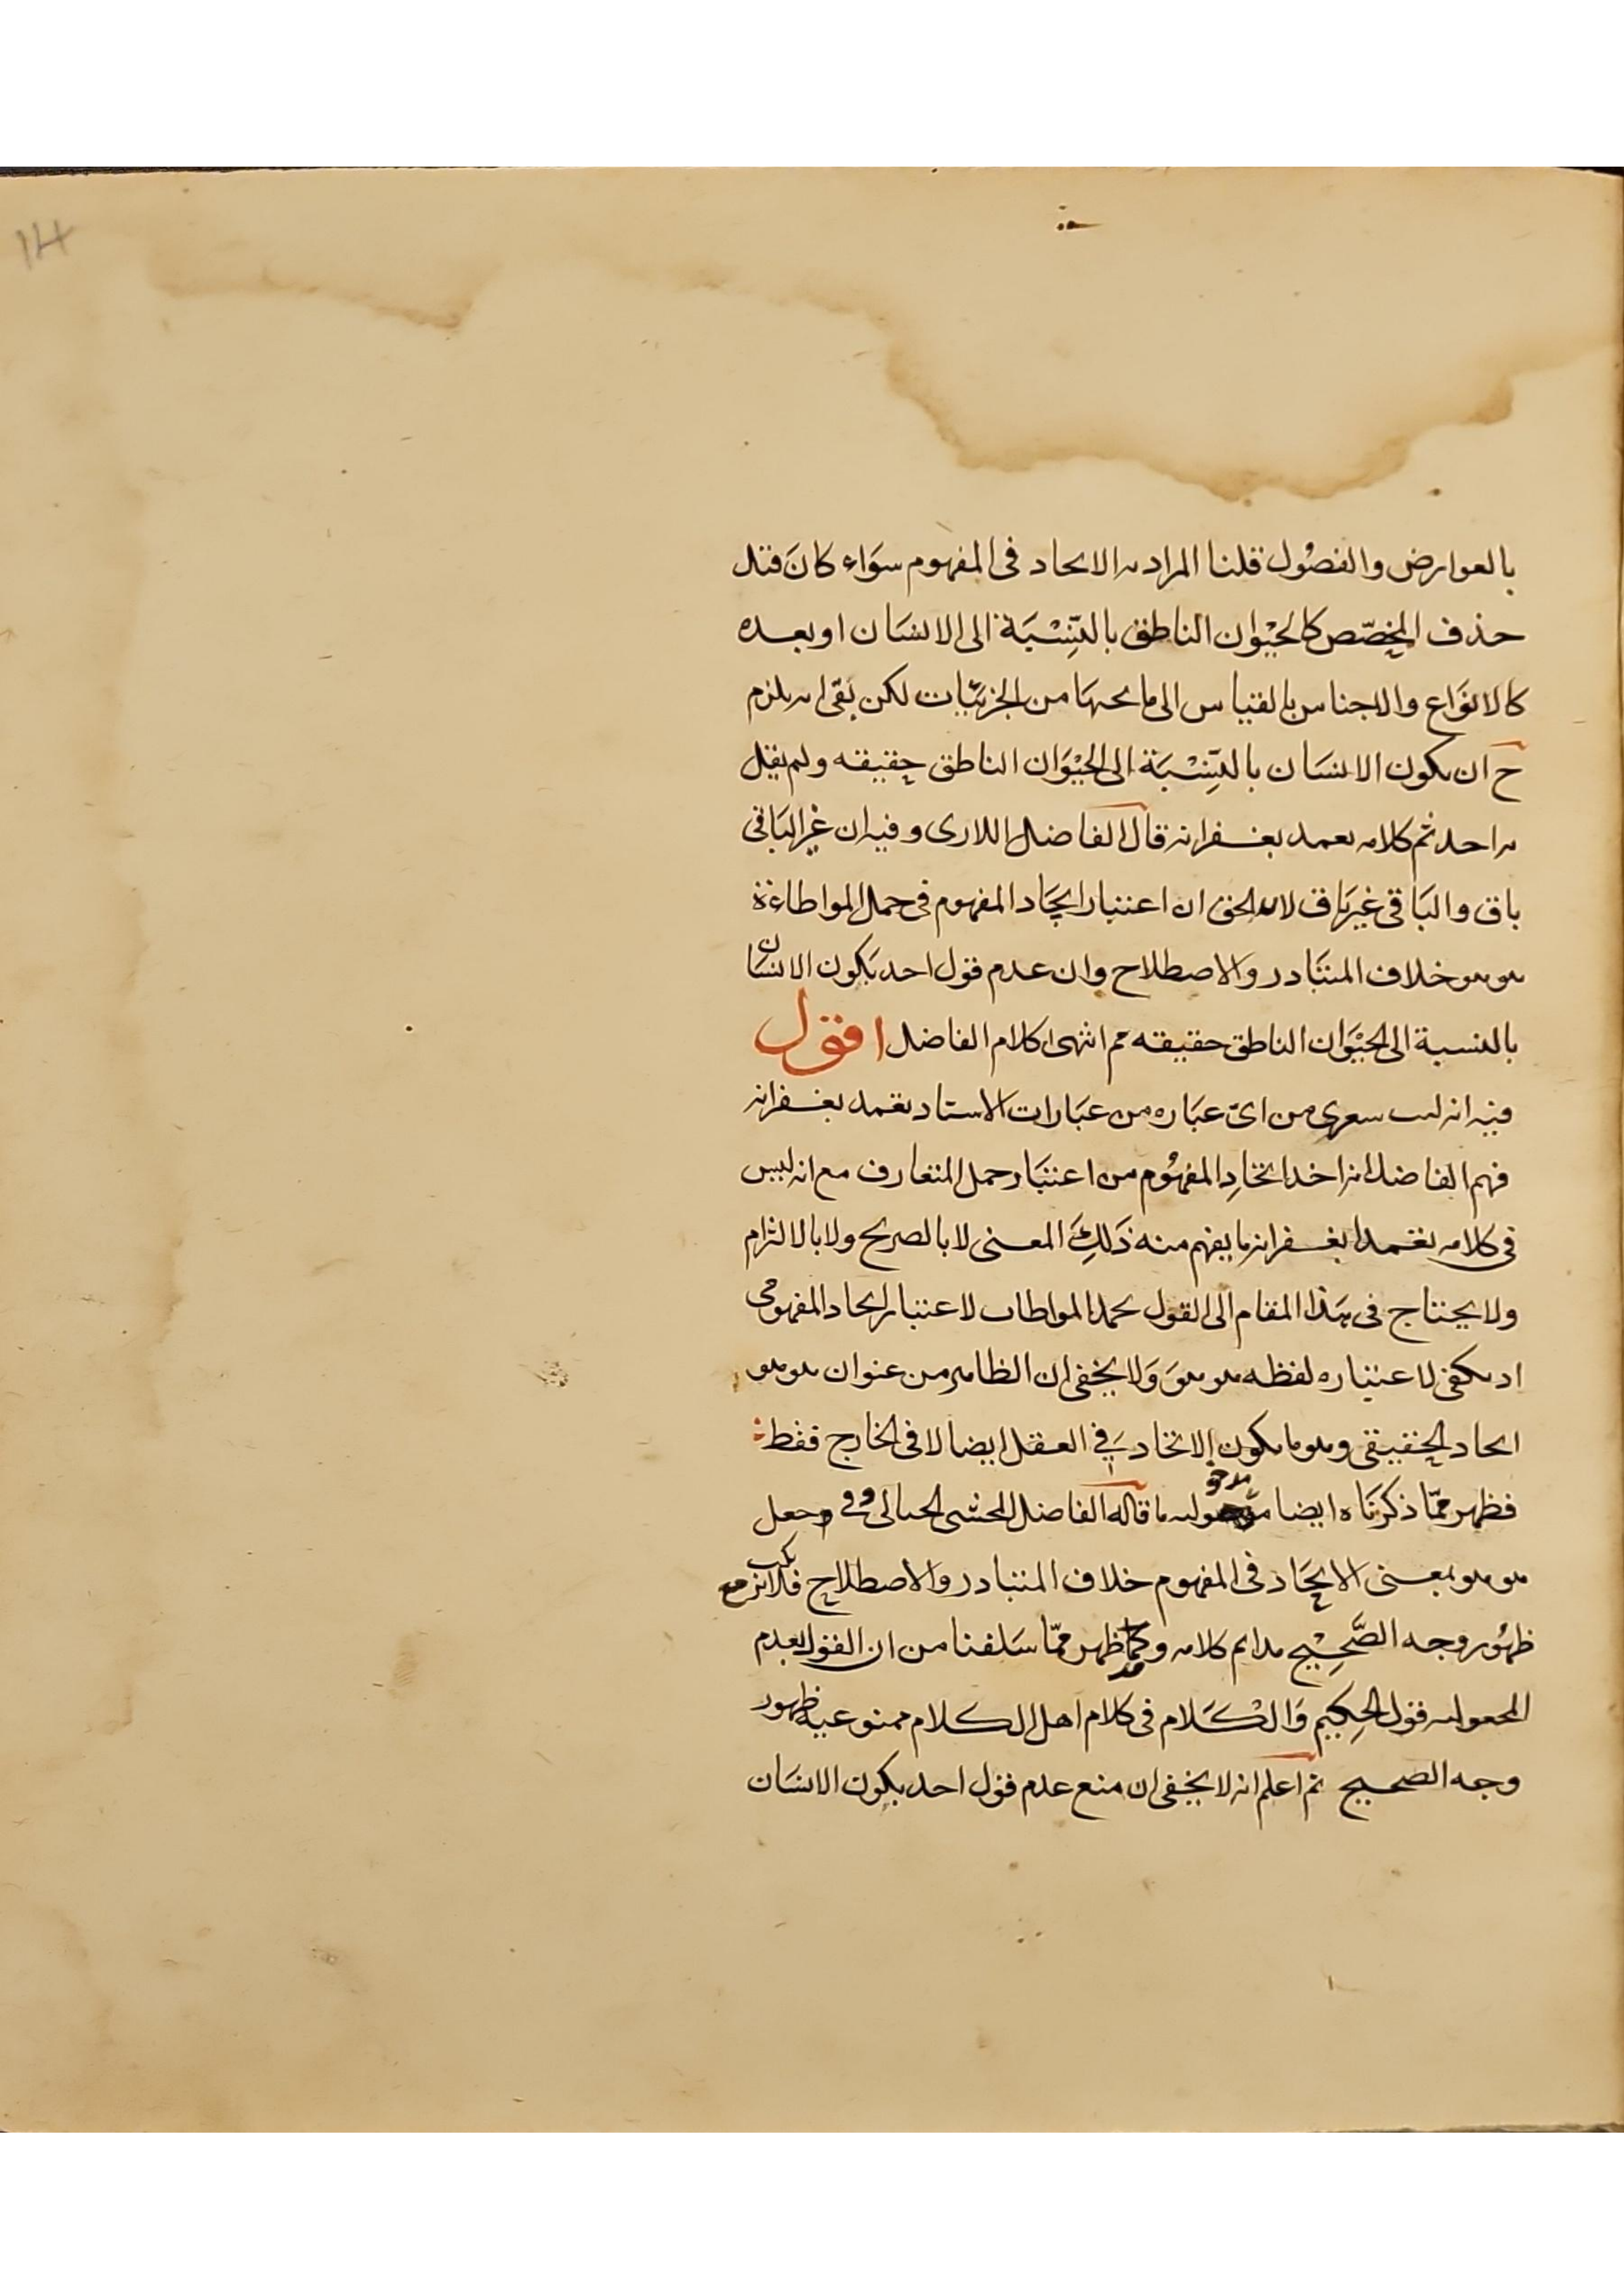 14
بالعوارض والفصُول قلنا المراد به الاتحاد فى المفهوم سوَاء كانَ قبل
حذف المخصّص كالحيْوان الناطق بالنِّسْبَة الى الانسَان او بعده
كالانوَاع والاجناس بالقياس الى ما تحتهَا من الجزئيّات لكن بقى انه يلزم
ح ان يكون الانسَان بالنِّسْبَة الى الحيْوَان الناطق حقيقه ولم يقل
به احد ثم كلامه تغمد بغفرانه قال الفاضل اللارى وفيه ان غير البَاقى
باق والبَاقى غير بَاق لان الحق ان اعتبار اتحَاد المفهوم فى حمل المواطاءة
هو هو خلاف المتبَادر والاصطلاح وان عدم قول احد بَكون الانسَان
بالنسبة الى الحيْوَان الناطق حقيقه مم انتهى كلام الفاضل اقول
فيه انه ليت شعرى من اىّ عبَاره من عبَارات الاستاد تغمد بغفرانه
فهم الفاضل انه اخذ اتحَادِ المفهُوم من اعتبَار حمل المتعارف مع انه ليس
فى كلامه تغمد بغفرانه ما يفهم منه ذَلِكَ المعنى لا بالصريح ولا بالالتزام
ولا يحتاج فى هَذا المقام الى القول بحمل المواطات لاعتبار اتحاد المفهومى
اذ يكفى لاعتباره لفظه هو هوَ وَلا يخفى ان الظاهر من عنوان هو هو
اتحاد الحقيقى وهو ما يكون الاتحاد فِى العقل ايضا لا فى الخارج فقط
فظهر ممّا ذكرنَاه ايضا ما قاله الفاضل المحشى الحيالى وجعل
هو هو بمعنى الاتحَاد فى المفهوم خلاف المتبادر والاصطلاح فلا مع
ظهُور وجه الصَّحِيْح كلامه وكما ظهر ممّا سَلفنا من ان القول بعدم
قول الحِكيم وَالكَلام فى كلام اهل الكلام ظهور
وجه الصحيح ثم اعلم انه لا يخفى ان منع عدم قول احد بكون الانسَان